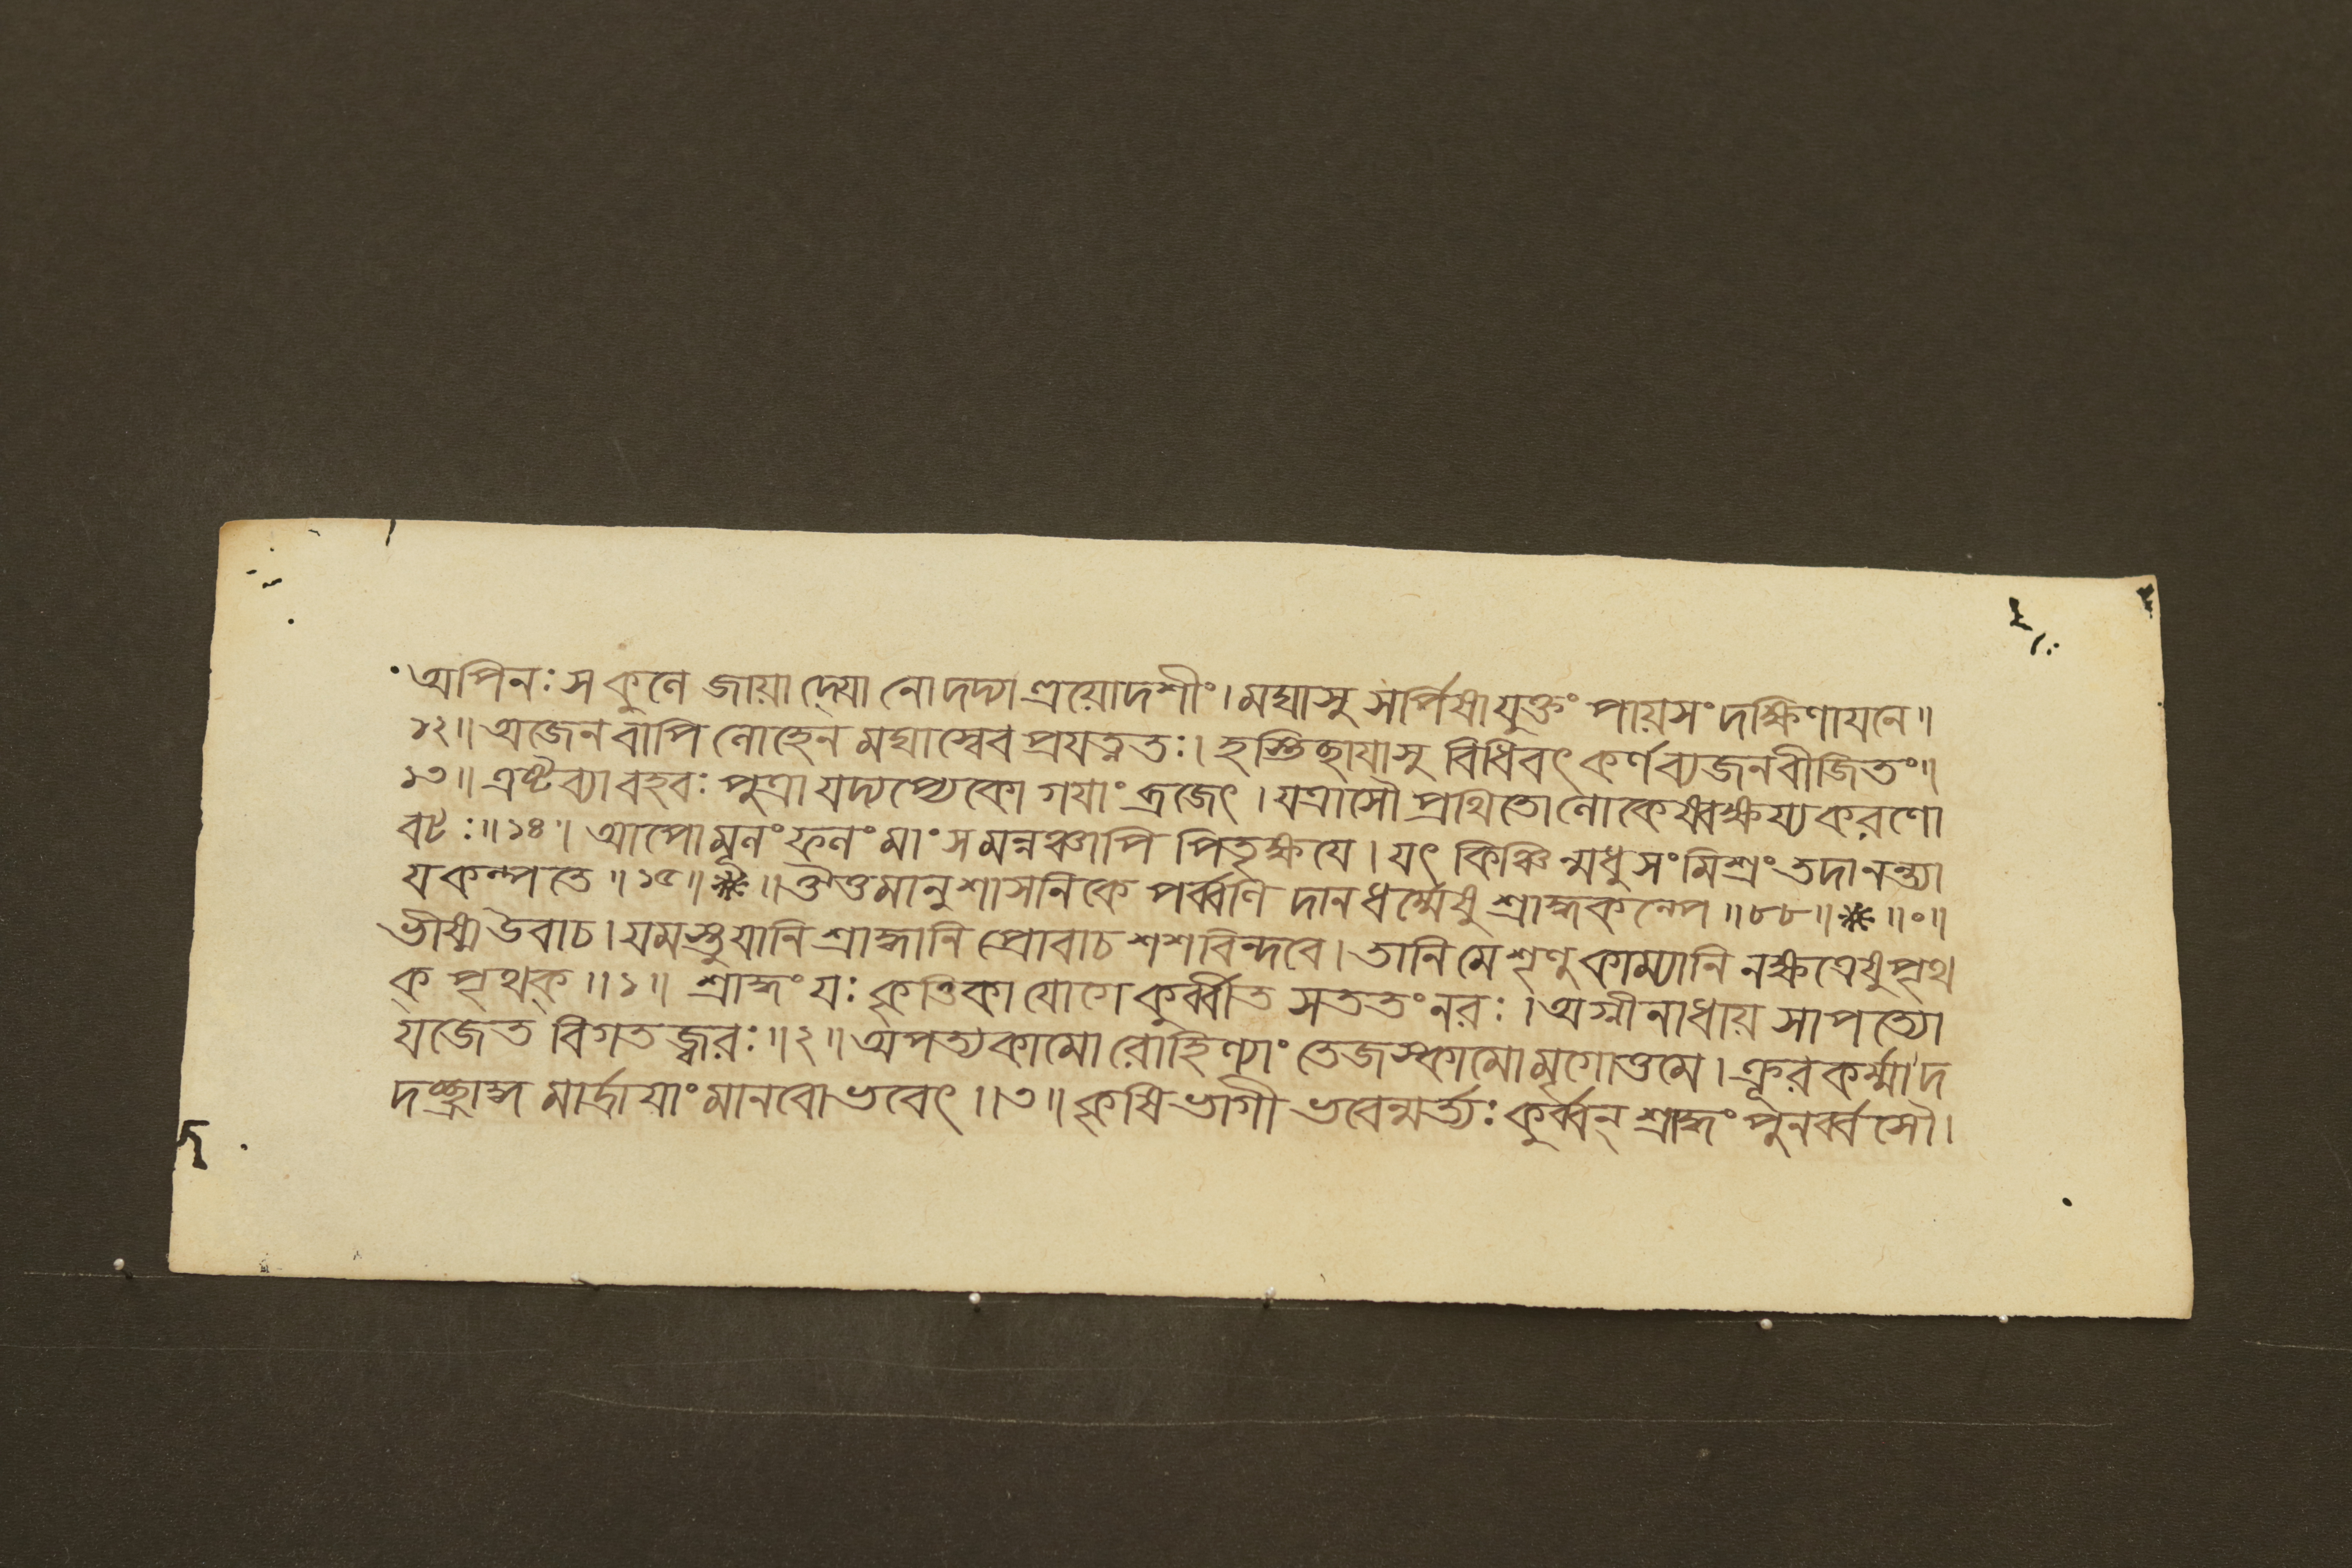 অপিনঃ সকুলে জায়াদ্যো নো দদ্যাত্রয়োদশীং। মঘাসু সর্পিষাযুক্তং পায়সং দক্ষিণাযনে॥
১২॥ অজেন বাপি লোহেন মঘাস্বেব প্রযত্নতঃ। হস্তিছায়াসু বিধিবৎ কর্ণব্যজনবীজিতং॥
১৩॥ এষ্টব্যা বহবঃ পুত্রা যদ্যপ্যেকো গযাং ব্রজেৎ। যত্রাসৌ প্রথিতো লোকেষ্বক্ষয্যকরণো
বটঃ॥১৪॥ আপো মূলং ফলং মাংসমন্নঞ্চাপি পিতৃক্ষযে। যৎ কিঞ্চিন্মধুসংমিশ্রং তদানন্ত্যা
যকল্পতে॥১৫॥ ※ ॥ ঔত্তমানুশাসনিকে পর্ব্বণি দানধর্ম্মেষু শ্রাদ্ধকল্পে॥৮৮॥ ※ ॥०॥
ভীষ্ম উবাচ। যমস্তু যানি শ্রাদ্ধানি প্রোবাচ শশবিন্দবে। তানি মে শৃণু কাম্যানি নক্ষত্রেষু পৃথ
ক্ পৃথক্॥১॥ শ্রাদ্ধং যঃ কৃত্তিকাযোগে কুর্ব্বীত সততং নরঃ। অগ্নীনাধায় সাপত্যো
যজেত বিগতজ্বরঃ॥২॥ অপত্যকামো রোহিণ্যাং তেজস্কামো মৃগোত্তমে। ক্রূরকর্ম্মা দ
দচ্ছ্রাদ্ধমার্দ্রাযাং মানবো ভবেৎ॥৩॥ কৃষিভাগী ভবেন্মর্ত্যঃ কুর্ব্বন্ শ্রাদ্ধং পুনর্ব্বসৌ।